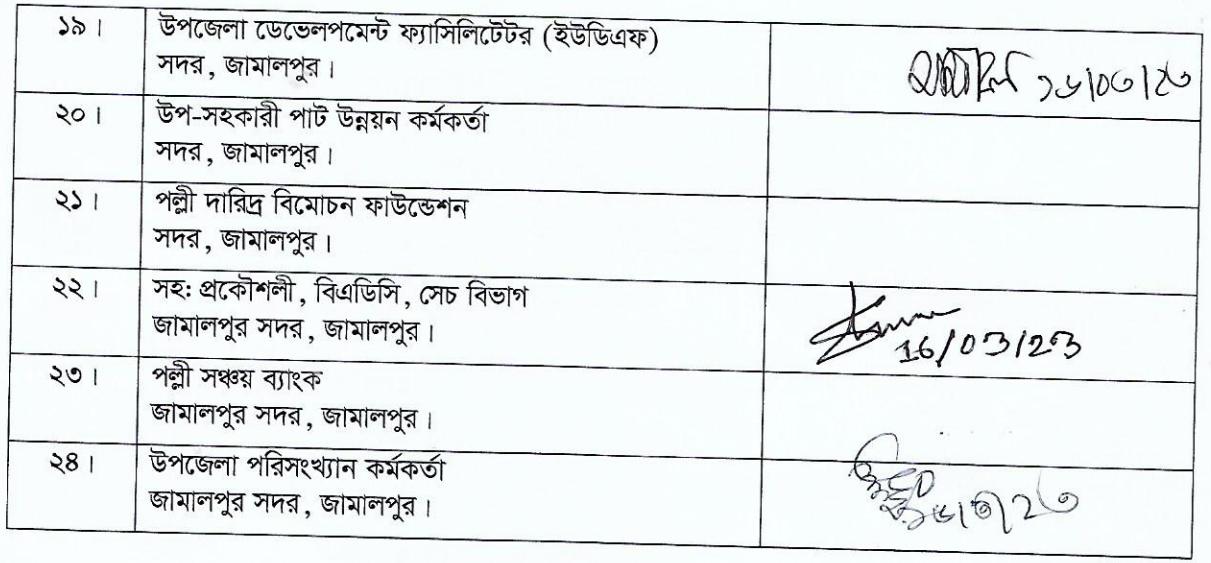 ১৯। উপজেলা ডেভেলপমেন্ট ফ্যাসিলিটেটর (ইউডিএফ)
সদর, জামালপুর।
১৬/০৩/২৩
২০। উপ-সহকারী পাট উন্নয়ন কর্মকর্তা
সদর, জামালপুর।
২১। পল্লী দারিদ্র বিমোচন ফাউন্ডেশন
সদর, জামালপুর।
২২। সহঃ প্রকৌশলী, বিএডিসি, সেচ বিভাগ
জামালপুর সদর, জামালপুর।
16/03/23
২৩। পল্লী সঞ্চয় ব্যাংক
জামালপুর সদর, জামালপুর।
২৪। উপজেলা পরিসংখ্যান কর্মকর্তা
জামালপুর সদর, জামালপুর।